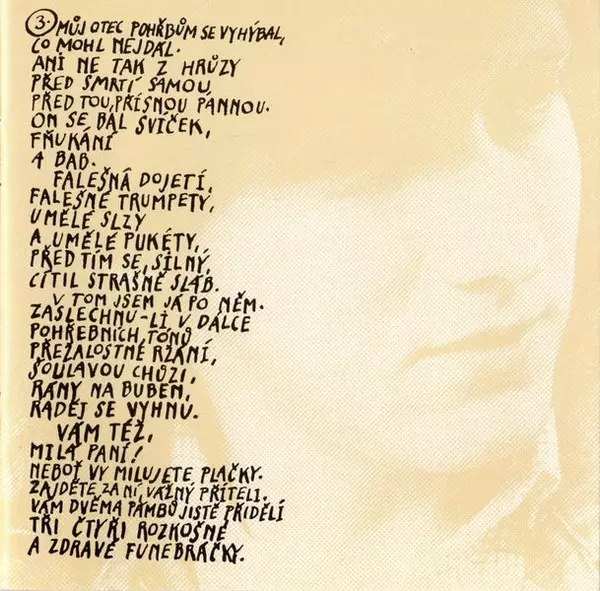 3. MŮJ OTEC POHŘBŮM SE VYHÝBAL,
CO MOHL NEJDÁL.
ANI NE TAK Z HRŮZY
PŘED SMRTÍ SAMOU,
PŘED TOU, PŘÍSNOU PANNOU.
ON SE BÁL SVÍČEK,
FŇUKÁNÍ
A BAB.
FALEŠNÁ DOJETÍ,
FALEŠNÉ TRUMPETY,
UMĚLÉ SLZY
A UMĚLÉ PUKÉTY,
PŘED TÍM SE, SILNÝ,
CÍTIL STRAŠNĚ SLÁB.
V TOM JSEM JÁ PO NĚM.
ZASLECHNU-LI V DÁLCE
POHŘEBNÍCH TÓNŮ
PŘEŽALOSTNÉ RŽÁNÍ,
ŠOULAVOU CHŮZI,
RÁNY NA BUBEN,
RADĚJ SE VYHNU.
VÁM TÉŽ,
MILÁ PANÍ!
NEBOŤ VY MILUJETE PLAČKY.
ZAJDĚTE ZA NÍ, VÁŽNÝ PŘÍTELI.
VÁM DVĚMA PÁMBŮ JISTĚ PŘIDĚLÍ
TŘI ČTYŘI ROZKOŠNÉ
A ZDRAVÉ FUNEBRÁČKY.